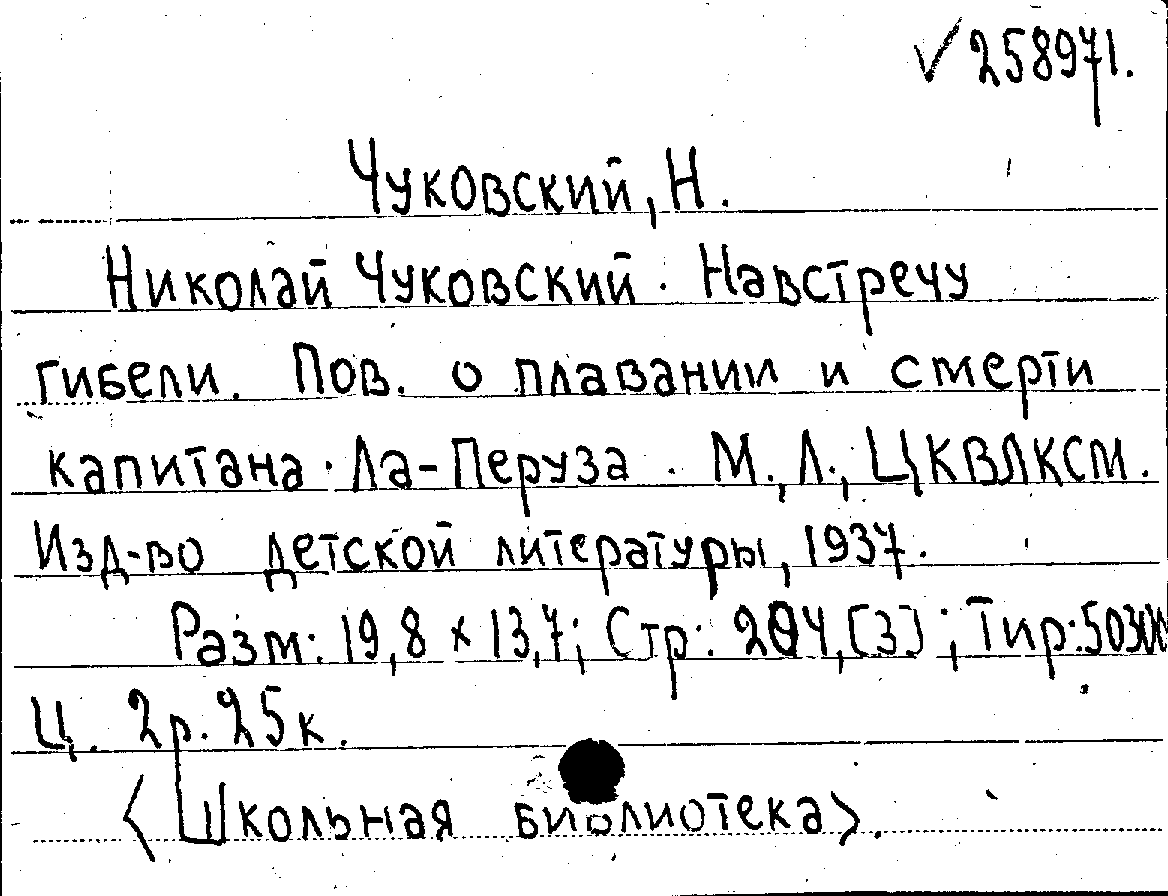 √258971.
Чуковский, Н.
Николай Чуковский. Навстречу
гибели. Пов. о плавании и смерти
капитана Ла-Перуза. М., Л., ЦКВЛКСМ.
Изд-во детской литературы, 1937.
Разм: 19,8 x 13,7; Стр: 204, [3]; Тир:
Ц. 2р. 25к.
<Школьная библиотека>.